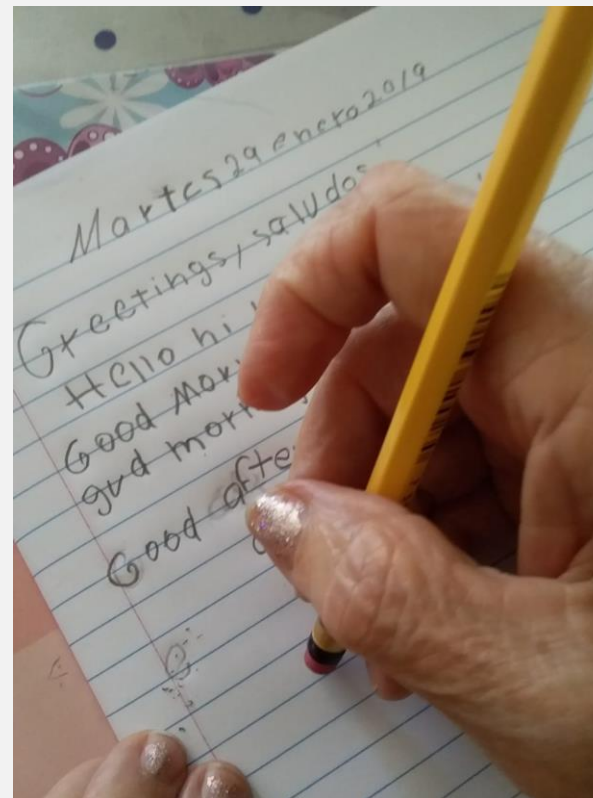 Martes 29 enero 2019
Greetings, saludos
Hello hi
Good
gud
Good